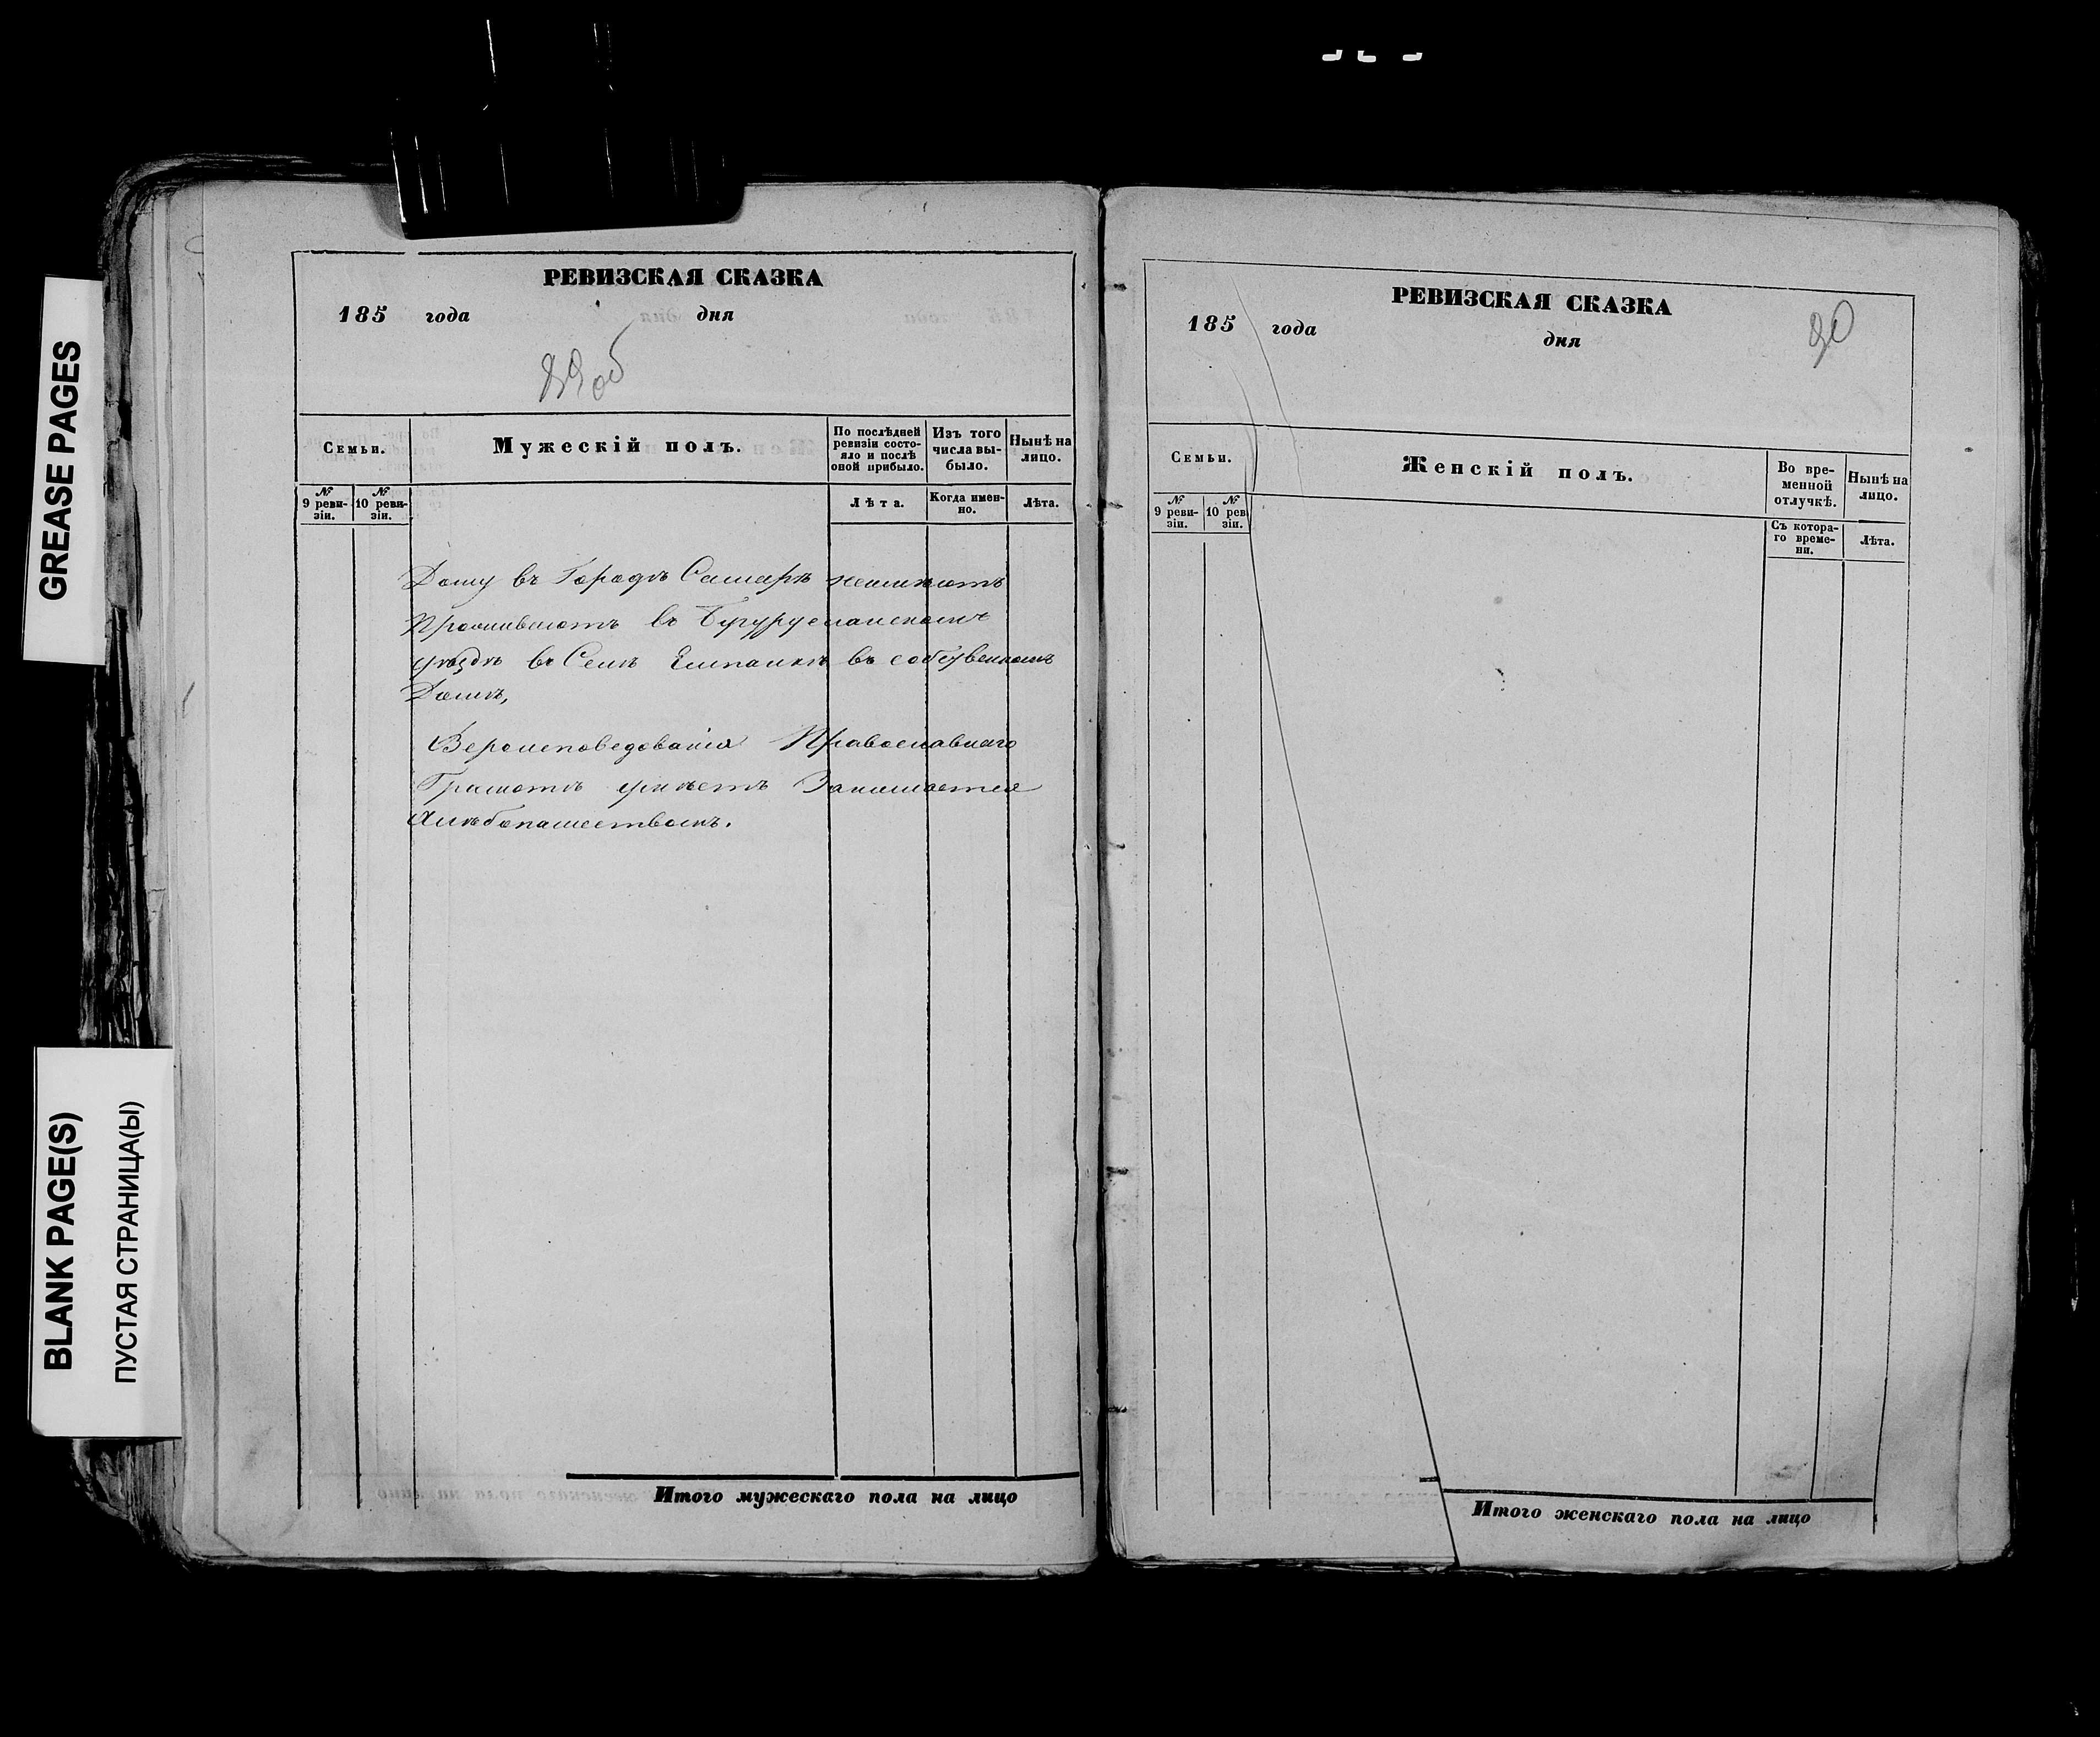 GREASE PAGES
BLANK PAGE(S)
ПУСТАЯ СТРАНИЦА(Ы)
РЕВИЗСКАЯ СКАЗКА
185 года дня
89 об
Семьи.
Мужескій полъ.
По послѣдней ревизіи состо-
яло и послѣ оной прибыло.
Изъ того числа вы-
было.
Нынѣ на лицо.
№ 9 реви-
зіи.
№ 10 реви-
зіи.
Лѣта.
Когда имен-
но.
Лѣта.
Дому въ Городѣ Самарѣ неимѣютъ
Проживаютъ въ Бугурусланскомъ
уѣздѣ въ Селѣ Емпанкѣ въ собственномъ
Домѣ,
Вероисповедованія Православнаго
Грамотѣ умѣетъ Занимается
Хлѣбопашествомъ.
Итого мужескаго пола на лицо
РЕВИЗСКАЯ СКАЗКА
185 года дня
90
Семьи.
Женскій полъ.
Во вре-
менной
отлучкѣ.
Нынѣ на
лицо.
№ 9 реви-
зіи.
№ 10 рев
зіи.
Съ котора-
го време-
ни.
Лѣта.
Итого женскаго пола на лицо